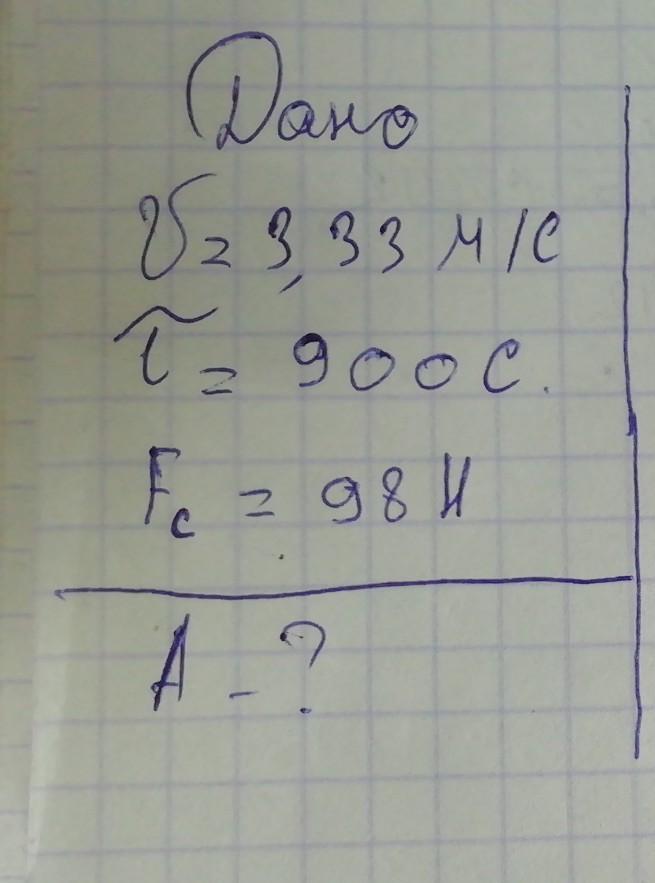 Дано
υ = 3,33 м/с
τ = 900 с.
Fс = 98 Н
А - ?